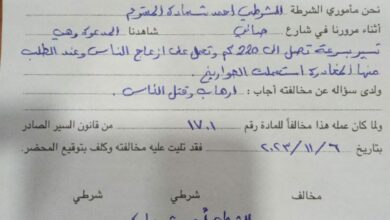 نحن مأموري الشرطة للشرطي احمد شحادة المحترم
أثناء مرورنا في شارع شاهدنا المدعوة وهي
تسير بسرعة تصل الى 220 كم وتعمل على ازعاج الناس وعند الطلب
منها المغادرة استعملت الصواريخ
ولدى سؤاله عن مخالفته أجاب : ارهاب وقتل الناس .
ولما كان عمله هذا مخالفاً للمادة رقم ١٧٠١ من قانون السير الصادر
بتاريخ ٢٠٢٣/١١/٦ فقد تليت عليه مخالفته وكلف بتوقيع المحضر .
مخالف شرطي شرطي